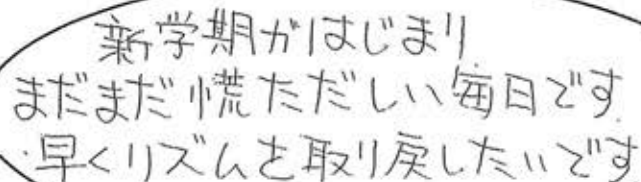 新学期がはじまり
まだまだ慌ただしい毎日です
早くリズムを取り戻したいです